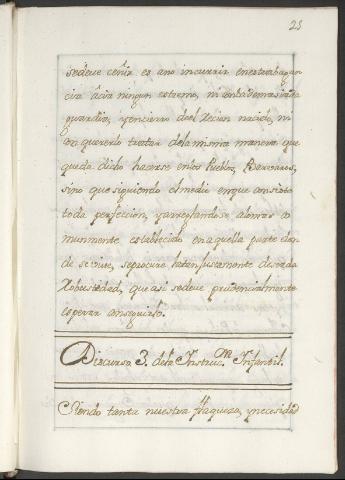 23
sedeve ceñir es ano incurrir enextrabagan
cia ácia ningun estremo, ni enlademasiada
guardia, yencierro del Recien nacido, ni
en quererlo tratar dela misma manera que
queda dicho hacerse enlos Pueblos Barbaros,
sino que siguiendo el medio enque consiste
toda perfeccion, yarreglandose alomas co
munmente establecido en aquella parte don
de se vive, seprocure latan justamente deseada
Robustedad, que asi sedeve prudencialmente
esperar conseguirlo.
Discurso 3. dela Instruc.on Infantil.
Siendo tanta nuestra flaqueza, ynecesidad